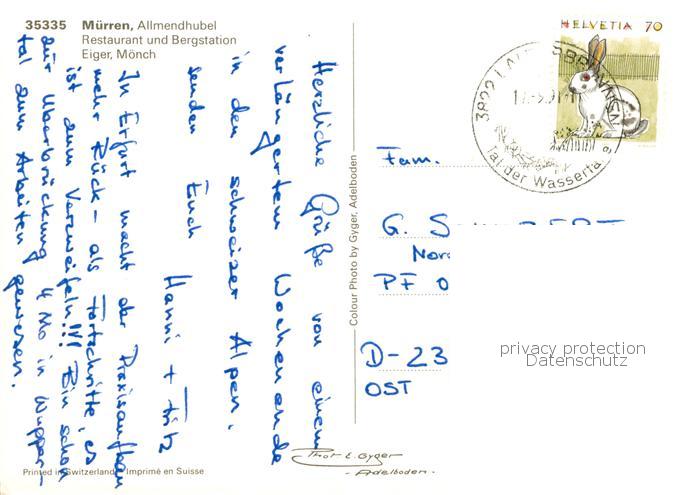 35335 Mürren, Allmendhubel
Restaurant und Bergstation
Eiger, Mönch
Herzliche Grüße von einem
verlängerten Wochenende
in den schweizer Alpen.
senden Euch
Hanni + Fritz
In Erfurt macht der Praxisaufbau
mehr Rück- als Fortschritte, es
ist zum Verzweifeln!!! Bin schon
zur Überbrückung 4 Mo in Wupper-
tal zum Arbeiten gewesen.
Printed in Switzerland Imprimé en Suisse
Colour Photo by Gyger, Adelboden
HELVETIA 70
3822 LAUTERBRUNNEN
Tal der Wasserfälle
Fam.
G. S
Nor
PF 0
D-23
OST
privacy protection
Datenschutz
Thor E. Gyger
- Adelboden -